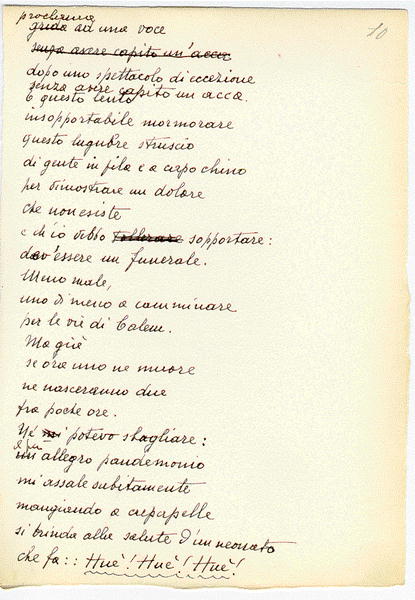 proclama
grida ad una voce
10
senza avere capito un'acca
dopo uno spettacolo di eccezione
senza avere capito un'acca.
È questo lento
insopportabile mormorare
questo lugubre struscio
di gente in fila e a capo chino
per dimostrare un dolore
che non esiste
e ch'io debbo tollerare sopportare:
dev'essere un funerale.
Meno male,
uno di meno a camminare
per le vie di
Ma già
se ora uno ne muore
ne nasceranno due
fra poche ore.
Né mi potevo sbagliare:
un allegro pandemonio
mi assale subitamente
mangiando a crepapelle
si brinda alla salute d'un neonato
che fa:: Huè! Huè! Huè!